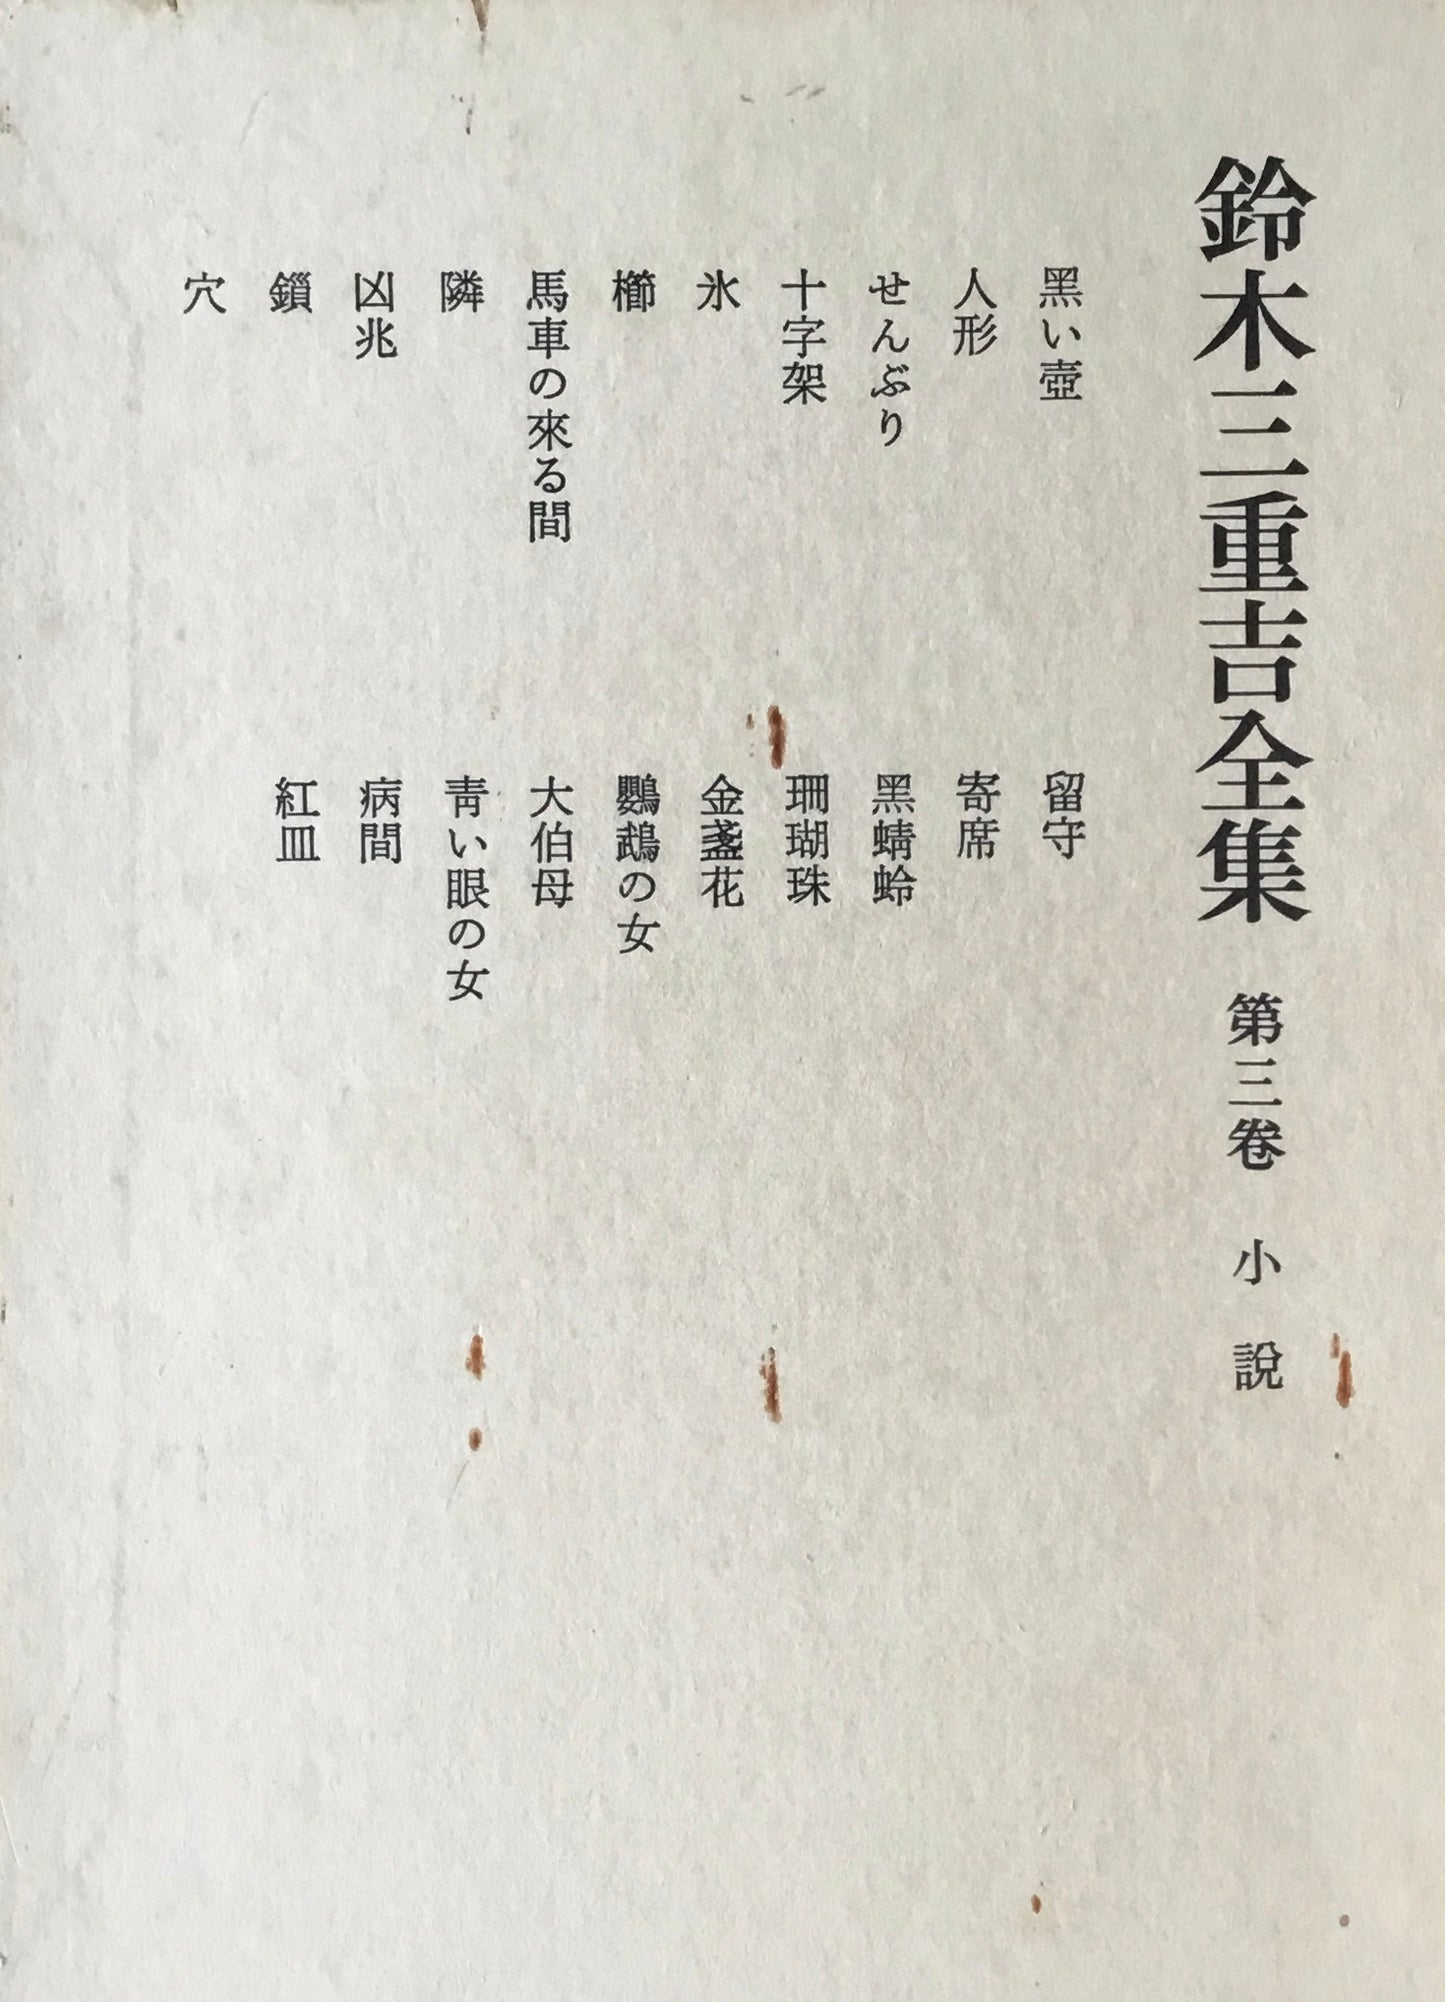 鈴木三重吉全集 第三巻 小説
黑い壺
人形
せんぶり
十字架
氷
櫛
馬車の來る間
隣
凶兆
鎖
穴
留守
寄席
黑蜻蛉
珊瑚珠
金盞花
鸚鵡の女
大伯母
靑い眼の女
病間
紅皿